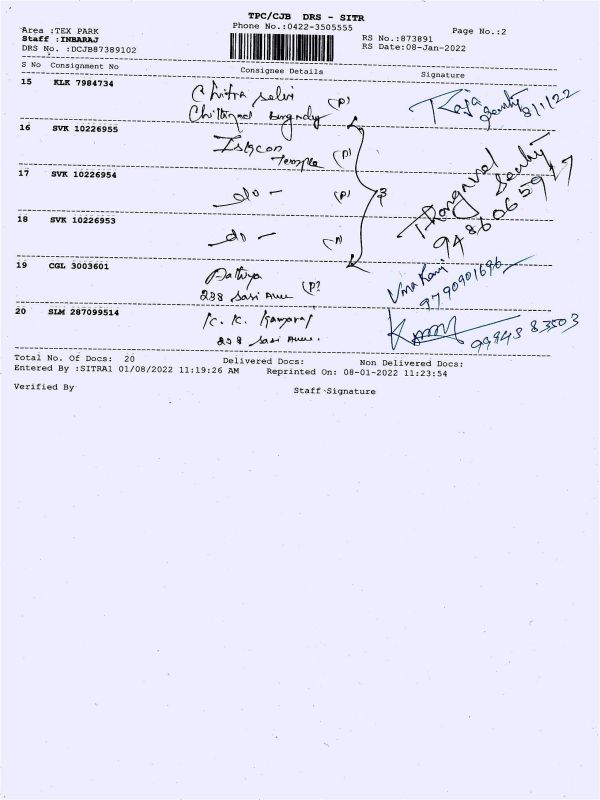 TPC/CJB DRS - SITR
Phone No.:0422-3505555
Page No.:2
Area :TEX PARK
Staff :INBARAJ
DRS No. :DCJB87389102
RS No.:873891
RS Date:08-Jan-2022
S No Consignment No Consignee Details Signature
15 KLK 7984734 Chitra selvi (P) Raja
8/1/22
16 SVK 10226955 Isk con
Temple (P)
17 SVK 10226954 -do- (P) 3
18 SVK 10226953 -do-
19 CGL 3003601 (P) Uma Rani
238 Sasi 9790901696
20 SLM 287099514 K. K. Kamaraj
238 Sasi 99943 83503
Total No. Of Docs: 20 Delivered Docs: Non Delivered Docs:
Entered By :SITRA1 01/08/2022 11:19:26 AM Reprinted On: 08-01-2022 11:23:54
Verified By Staff Signature